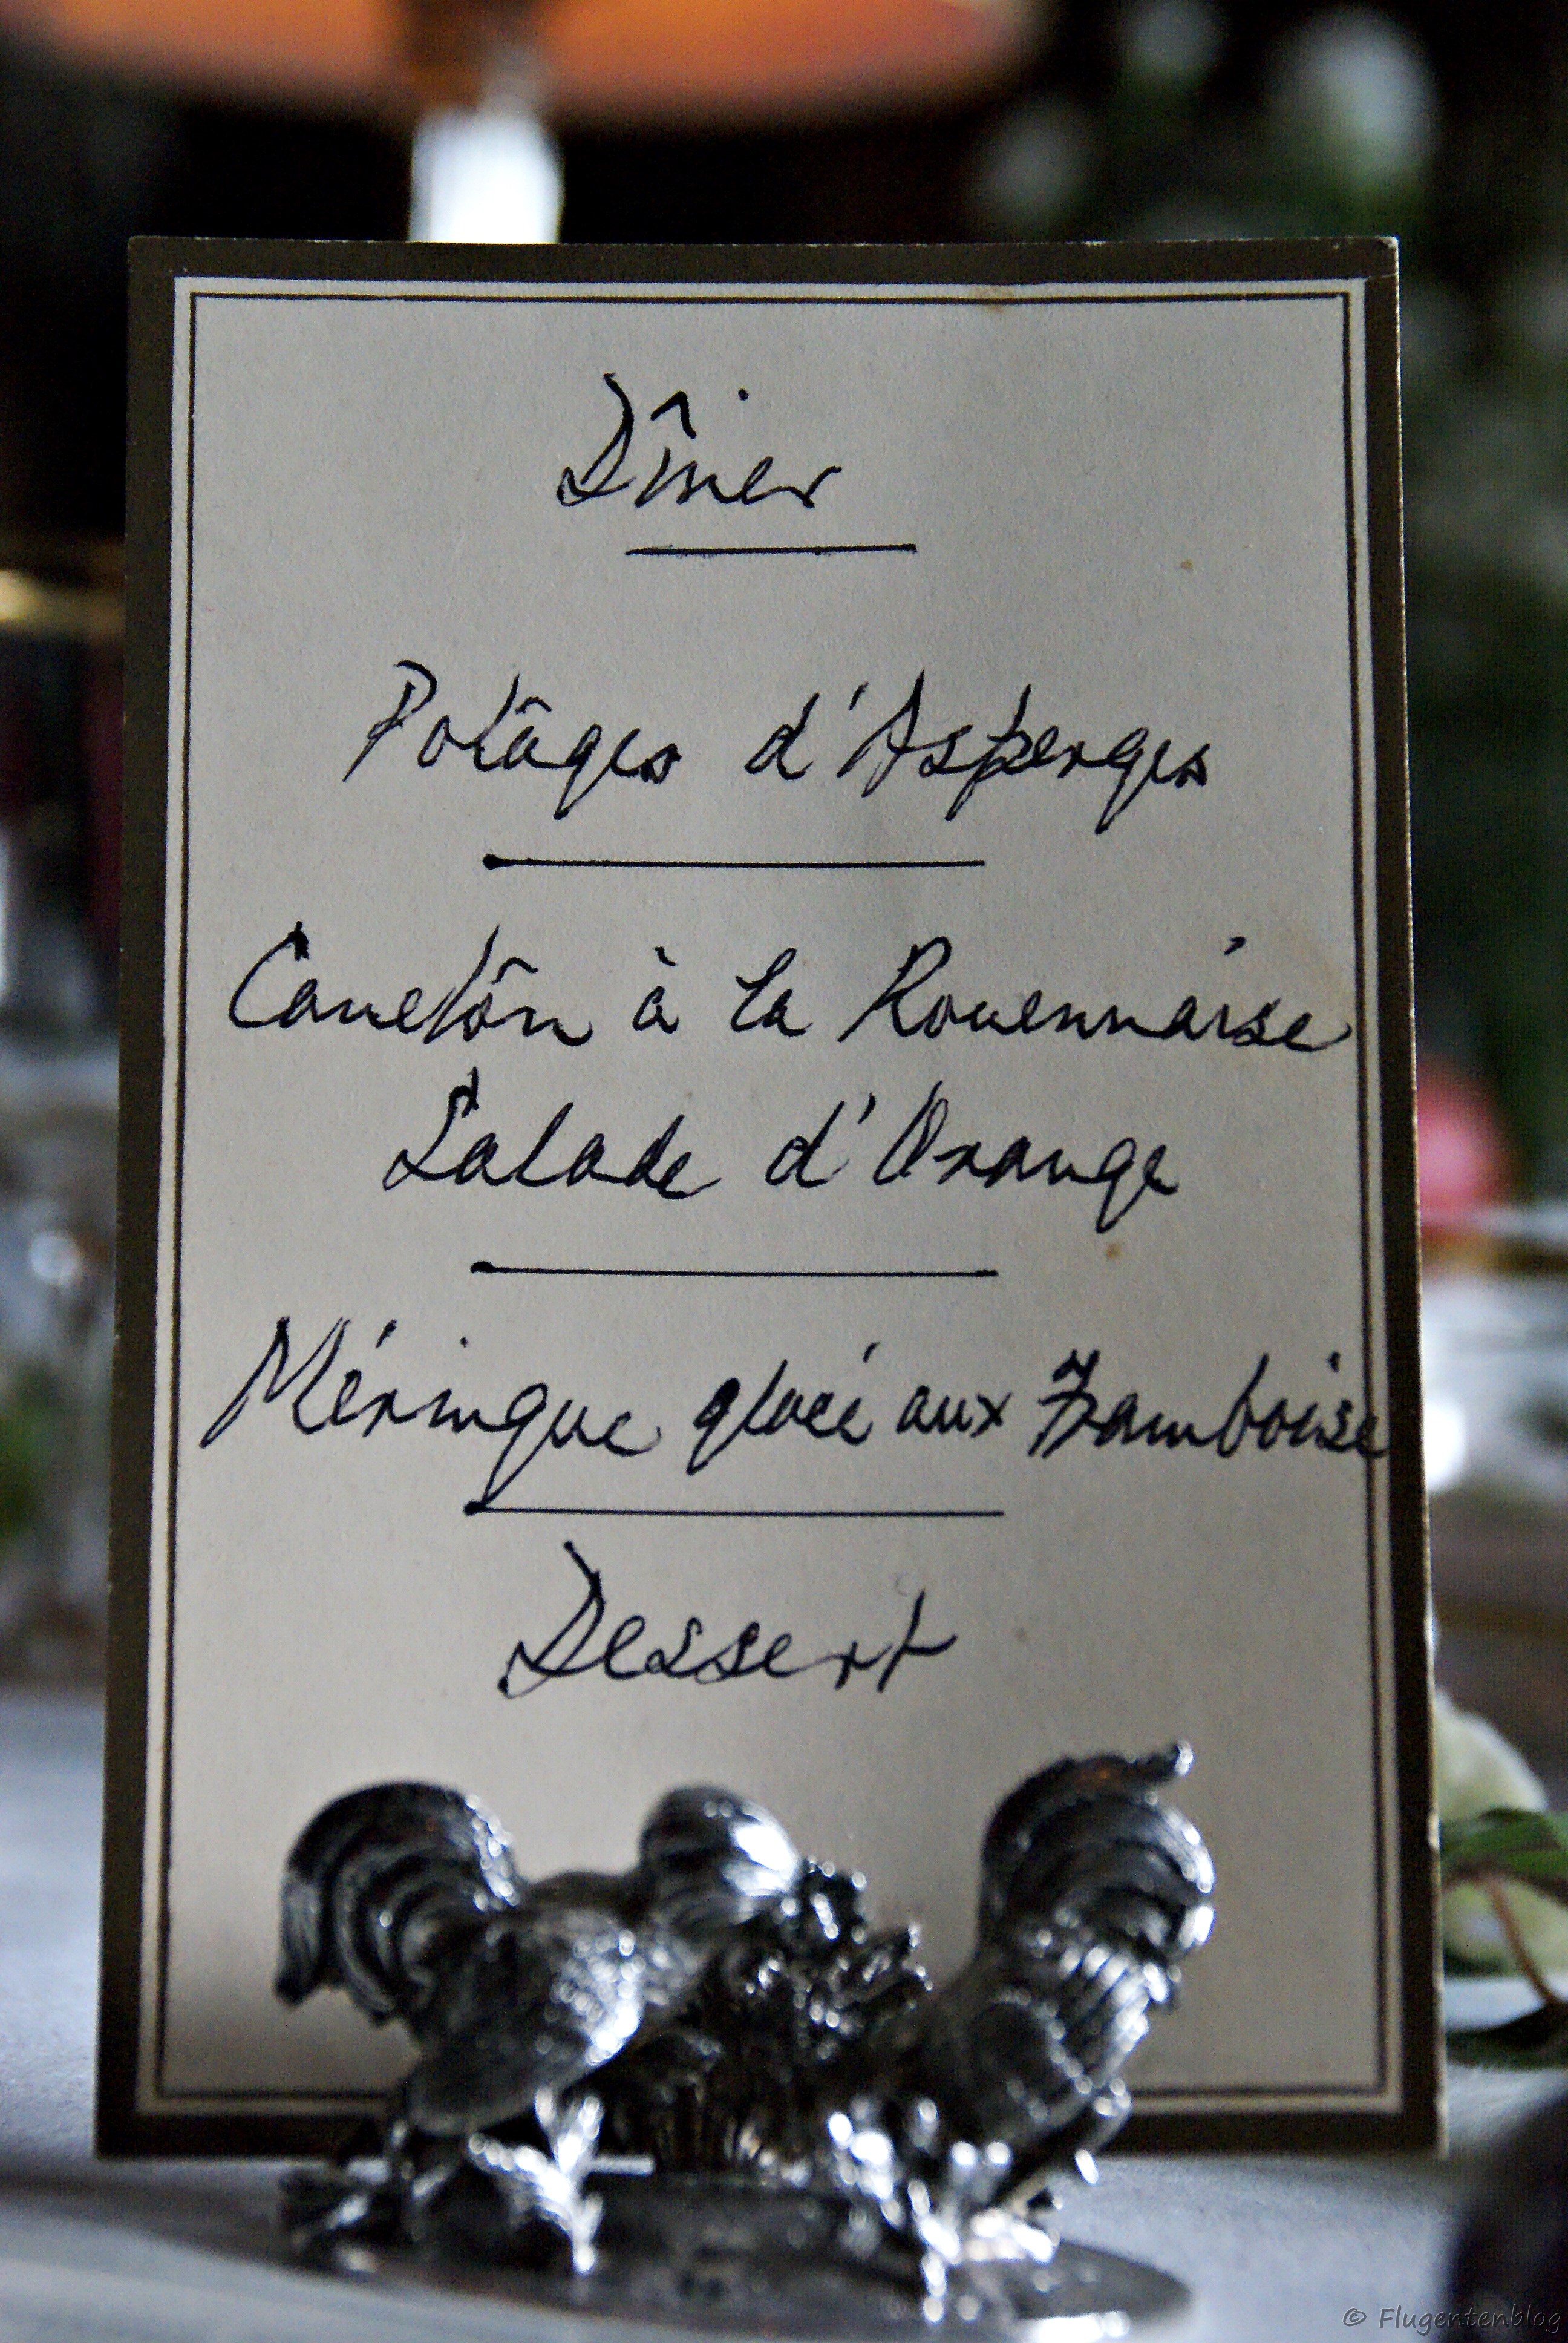 Dîner
Potâges d'Asperges
Canetôn à la Rouennaise
Salade d'Orange
Méringue glacé aux Framboise
Dessert
© Flugentenblog